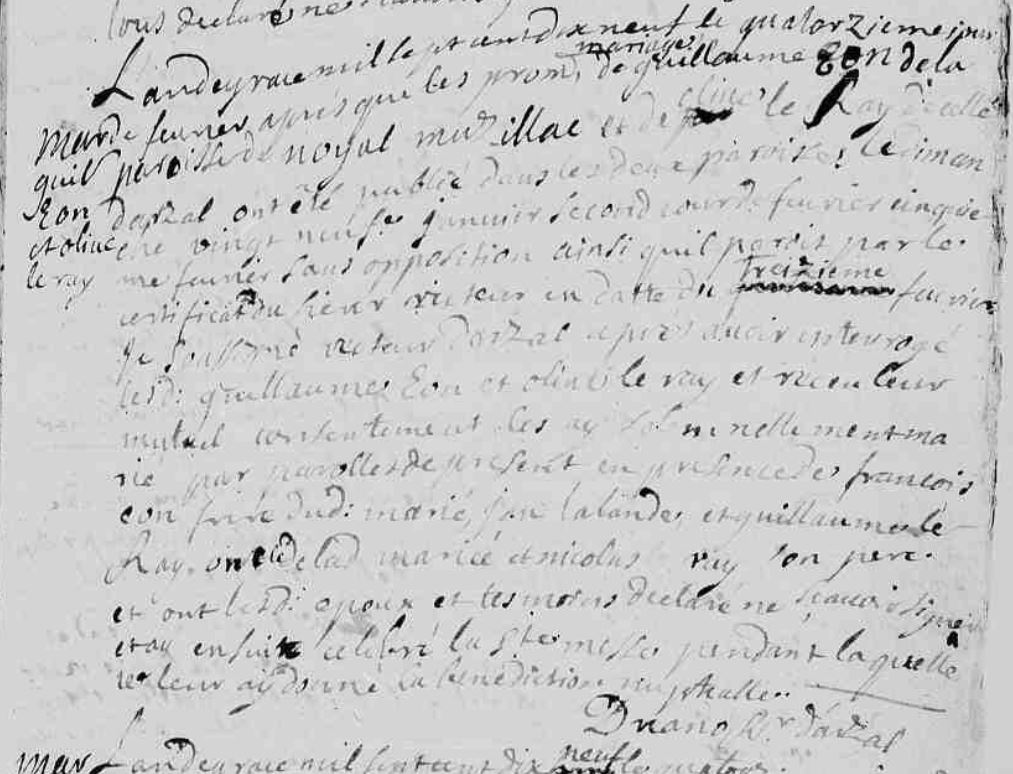 tous declaré ne
L'an de grace mil sept cent dix neuf le quatorzieme jour
mariages
de feuvrier apres que les prom: de guillaume Eon de la
Mar
guil
Eon
et olive
le ray
paroisse de noyal muzillac et de olive le Ray de celle
darzal ont été publié dans les deux paroisses le diman
che vingt neuf janvier second jour de feuvrier cinquie
me feuvrier sans opposition ainsi quil paroit par le
treizieme
certificat du sieur recteur en datte du feuvrier
je soussigné recteur darzal apres avoir interrogé
lesd: guillaume Eon et olive le ray et receu leur
mutuel consentement les ay solemnellement ma
rié par parolles de present en presence de francois
eon frere dud: marié, jan lalande, et guillaume le
Ray oncle de lad mariée et nicolas ray son pere
et ont lesd: epoux et tesmoins declaré ne scavoir signer
et ay ensuite celebré la Ste messe pendant laquelle
je leur ay donné la benediction nuptialle
Duano Rr d'arzal
neuf
Mar L'an de grace mil sept cent dix le quatorz